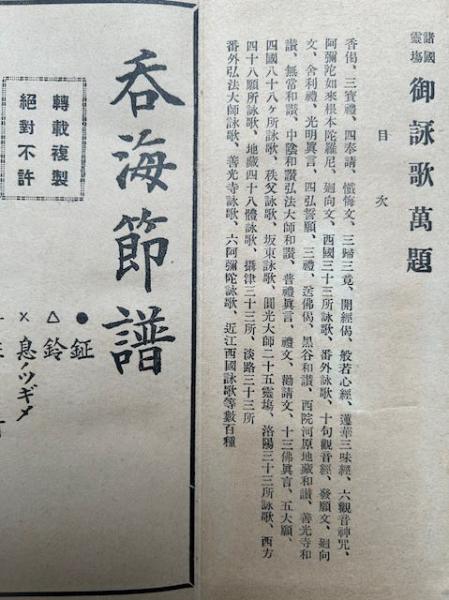 諸國靈場 御詠歌萬題
目次
香偈、三寶禮、四奉請、懺悔文、三歸三竟、開經偈、般若心經、蓮華三昧經、六觀音神咒、
阿彌陀如來根本陀羅尼、廻向文、西國三十三所詠歌、番外詠歌、十句觀音經、發願文、廻向
文、舍利禮、光明眞言、四弘誓願、三禮、送佛偈、黑谷和讃、西院河原地藏和讃、善光寺和
讃、無常和讃、中陰和讃弘法大師和讃、普禮眞言、禮文、勸請文、十三佛眞言、五大願、
四國八十八ヶ所詠歌、秩父詠歌、坂東詠歌、圓光大師二十五靈塲、洛陽三十三所詠歌、西方
四十八願所詠歌、地藏四十八體詠歌、攝津三十三所、淡路三十三所
番外弘法大師詠歌、善光寺詠歌、六阿彌陀詠歌、近江西國詠歌等數百種
呑海節譜
轉載複製
絕對不許
●鉦
△鈴
×息ノツギメ